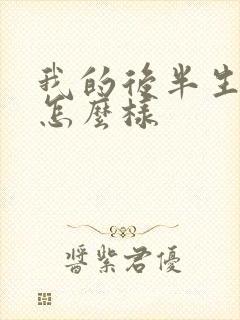 我的後半生
怎麼樣
醬紫君優